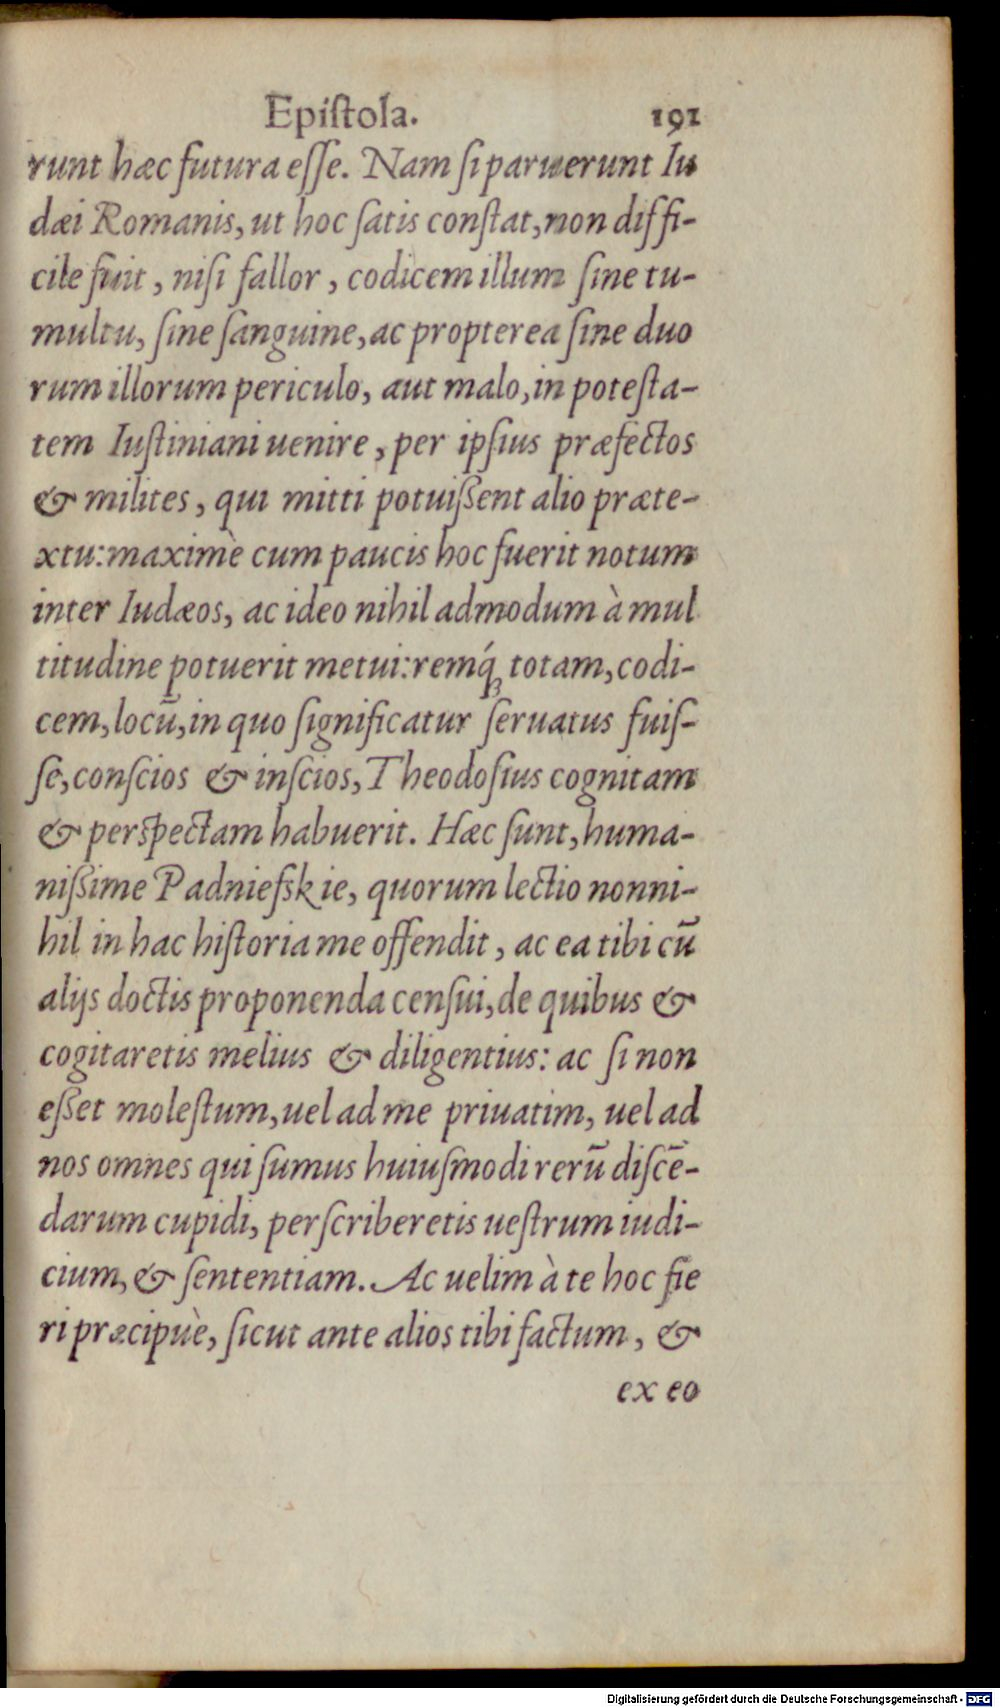 Epiſtola. 191
runt hæc futura eſſe. Nam ſi paruerunt Iu
dæi Romanis, ut hoc ſatis conſtat, non diffi-
cile fuit, niſi fallor, codicem illum ſine tu-
multu, ſine ſanguine, ac propterea ſine duo
rum illorum periculo, aut malo, in poteſta-
tem Iuſtiniani uenire, per ipſius præfectos
& milites, qui mitti potuiſſent alio præte-
xtu: maximè cum paucis hoc fuerit notum
inter Iudæos, ac ideo nihil admodum à mul
titudine potuerit metui: remq́; totam, codi-
cem, locū, in quo ſignificatur ſeruatus fuiſ-
ſe, conſcios & inſcios, Theodoſius cognitam
& perſpectam habuerit. Hæc ſunt, huma-
nißime Padnieſskie, quorum lectio nonni-
hil in hac hiſtoria me offendit, ac ea tibi cū
alijs doctis proponenda cenſui, de quibus &
cogitaretis melius & diligentius: ac ſi non
eßet moleſtum, uel ad me priuatim, uel ad
nos omnes qui ſumus huiuſmodi rerū diſcē-
darum cupidi, perſcriberetis ueſtrum iudi-
cium, & ſententiam. Ac uelim à te hoc fie
ri præcipuè, ſicut ante alios tibi factum, &
ex eo
Digitalisierung gefördert durch die Deutsche Forschungsgemeinschaft - DFG